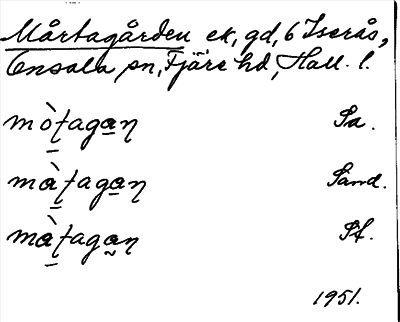 Mårtagården ek, gd, 6 Iserås,
Onsala sn, Fjäre hd, Hall. l.
mò̲ʈaga̲ɳ Sa.
mà̲ʈaga̲ɳ Sand.
mà̲ʈaga̰ɳ Sf.
1951.